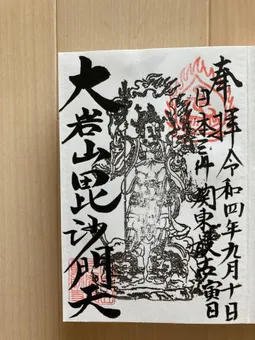 奉拝 令和四年九月十日
日本三 関東最古 寅日
大岩山毘沙門天